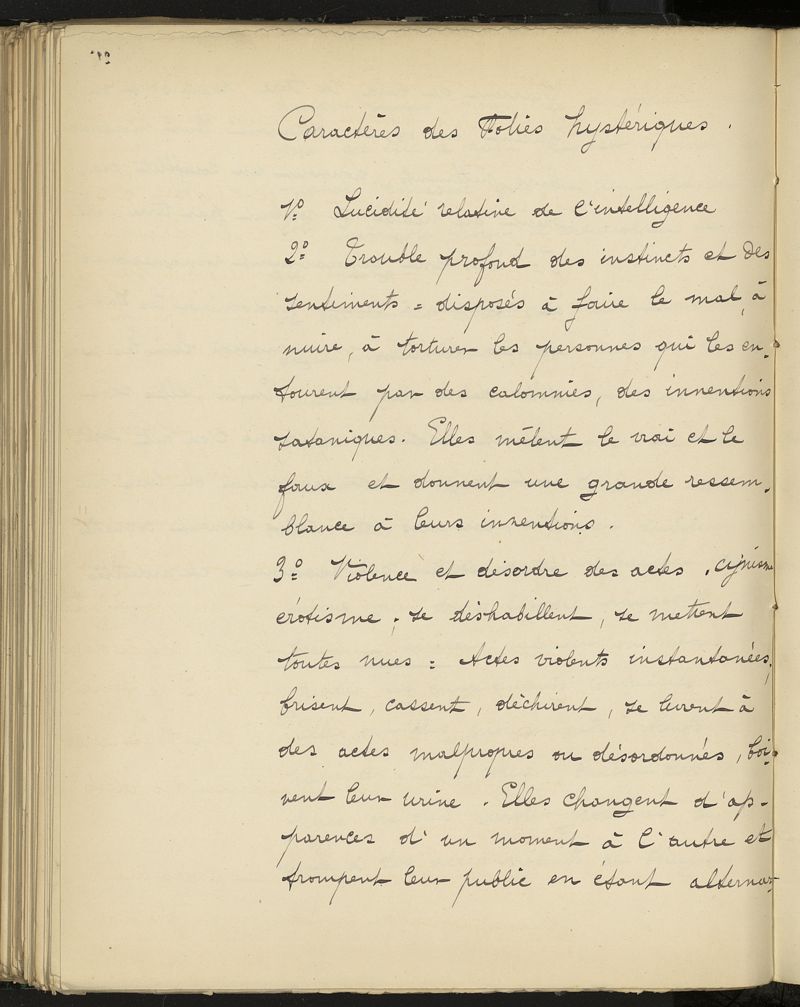 Caractères des Folies hystériques.
1º Lucidité relative de l'intelligence
2º Trouble profond des instincts et des
sentiments = disposés à faire le mal, à
nuire, à torturer les personnes qui les en-
tourent par des calomnies, des inventions
sataniques. Elles mêlent le vrai et le
faux et donnent une grande ressem-
blance à leurs inventions.
3º Violence et désordre des actes. cynisme
érotisme; se déshabillent, se mettent
toutes nues = Actes violents instantanées,
brisent, cassent, déchirent, se livrent à
des actes malpropres ou désordonnés, boi-
vent leur urine. Elles changent d'ap-
parences d'un moment à l'autre et
trompent leur public en étant alterna-